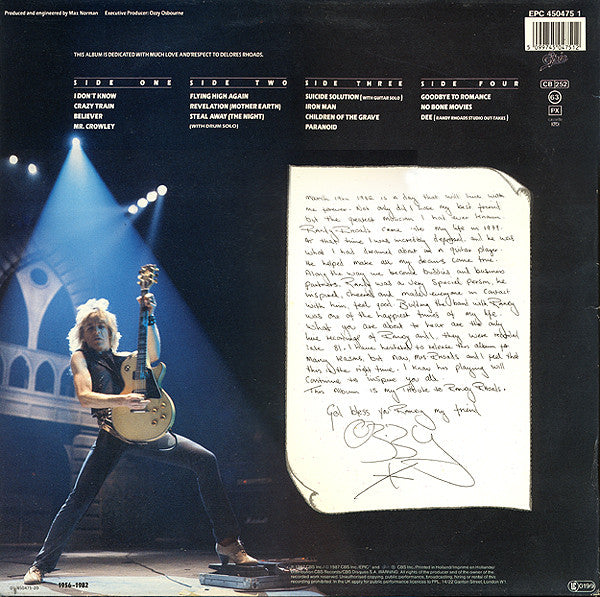 Produced and engineered by Max Norman Executive Producer: Ozzy Osbourne
EPC 450475 1
5 099745 047512
Epic
THIS ALBUM IS DEDICATED WITH MUCH LOVE AND RESPECT TO DELORES RHOADS.
CB 252
63
PX
SIDE ONE
I DON'T KNOW
CRAZY TRAIN
BELIEVER
MR. CROWLEY
SIDE TWO
FLYING HIGH AGAIN
REVELATION (MOTHER EARTH)
STEAL AWAY (THE NIGHT)
(WITH DRUM SOLO)
SIDE THREE
SUICIDE SOLUTION (WITH GUITAR SOLO)
IRON MAN
CHILDREN OF THE GRAVE
PARANOID
SIDE FOUR
GOODBYE TO ROMANCE
NO BONE MOVIES
DEE (RANDY RHOADS STUDIO OUT-TAKES)
March 19th 1982 is a day that will live with
me forever. Not only did I lose my best friend
but the greatest musician I had ever known.
Randy Rhoads came into my life in 1979.
At that time I was incredibly depressed, and he was
what I had dreamed about in a guitar player.
He helped make all my dreams come true.
Along the way we became buddies and business
partners. Randy was a very special person, he
inspired, cheered and made everyone in contact
with him feel good. Building the band with Randy
was one of the happiest times of my life.
What you are about to hear are the only
live recordings of Randy and I, they were recorded
late '81. I have hesitated to release this album for
many reasons, but now Mrs Rhoads and I feel that
this is the right time. I know his playing will
continue to inspire you all.
This Album is my Tribute to Randy Rhoads.
God bless you Randy my friend
Ozzy
1956-1982
℗ 1987 CBS Inc./© 1987 CBS Inc./EPIC and are ® CBS Inc./Printed in Holland/Imprimé en Hollande/
Distribution CBS Records/CBS Disques S.A. WARNING: All rights of the producer and of the owner of the
recorded work reserved. Unauthorised copying, public performance, broadcasting, hiring or rental of this
recording prohibited. In the UK apply for public performance licences to PPL, 14/22 Ganton Street, London W1.
LC 0199